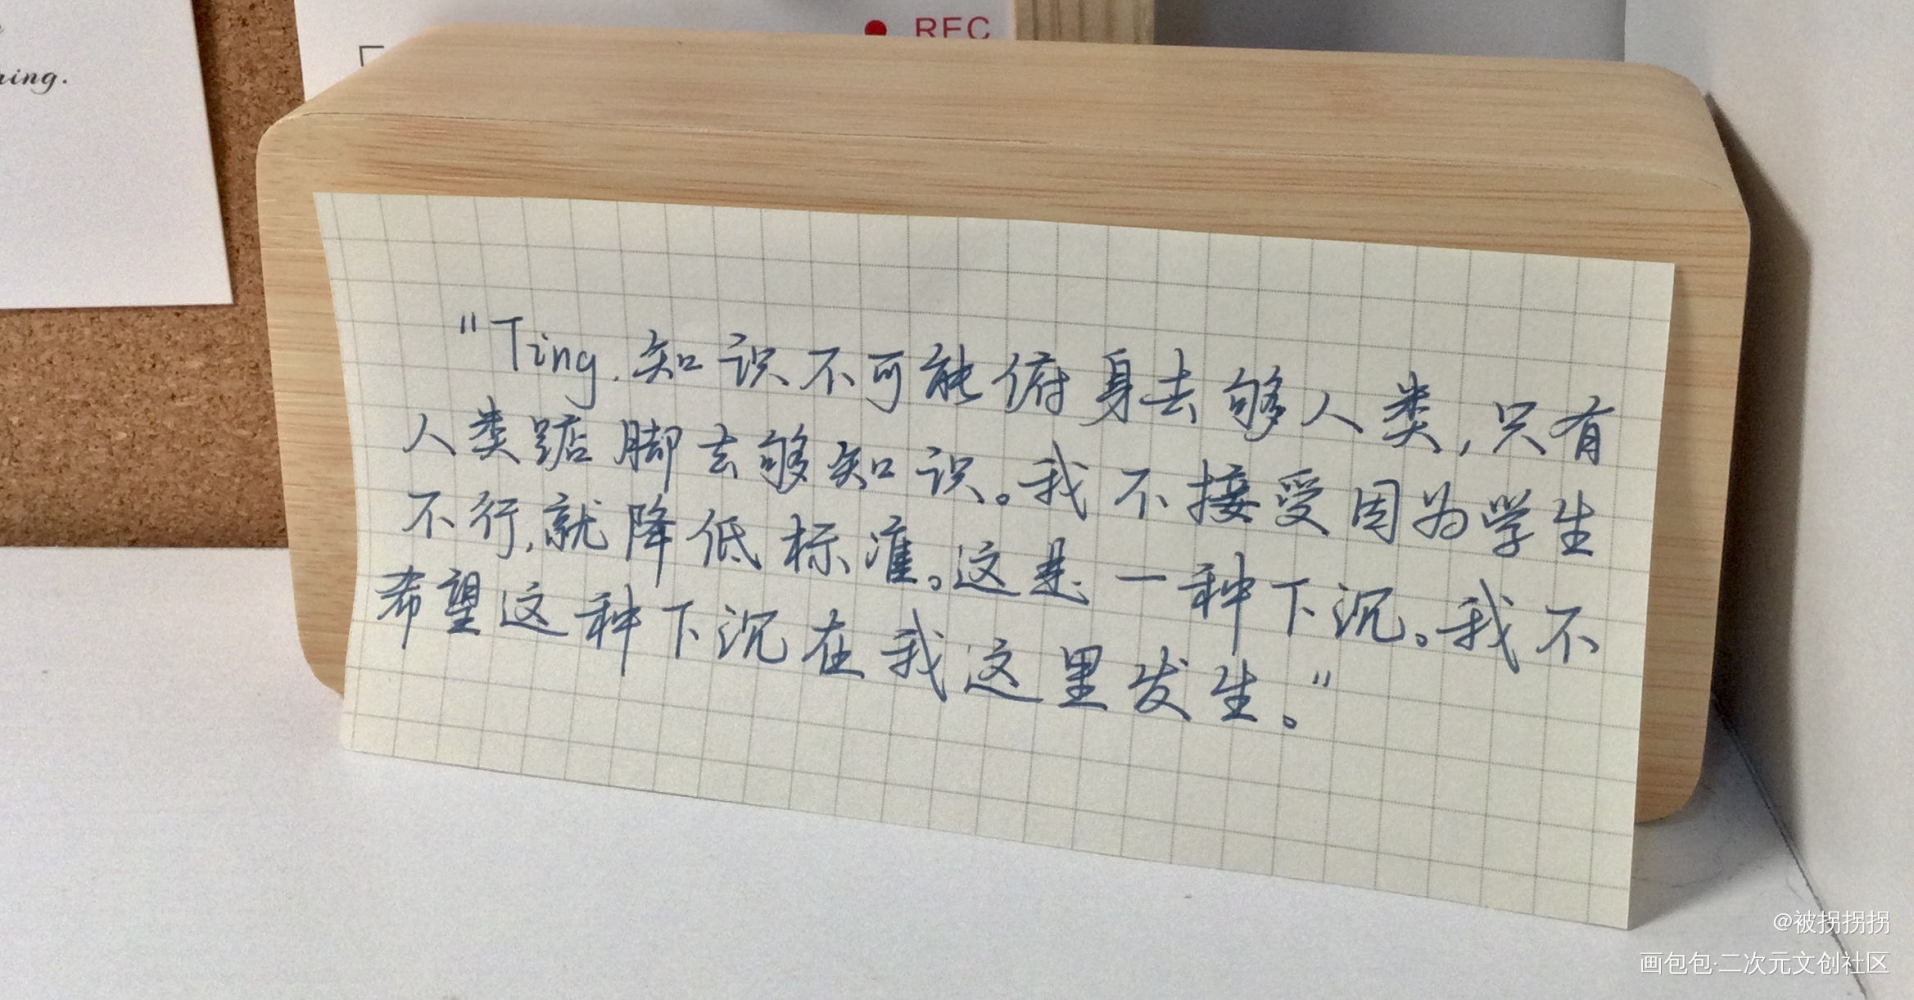 ning.
REC
"Ting.知识不可能俯身去够人类,只有
人类踮脚去够知识。我不接受因为学生
不行,就降低标准。这是一种下沉。我不
希望这种下沉在我这里发生。"
@被拐拐拐
画包包·二次元文创社区